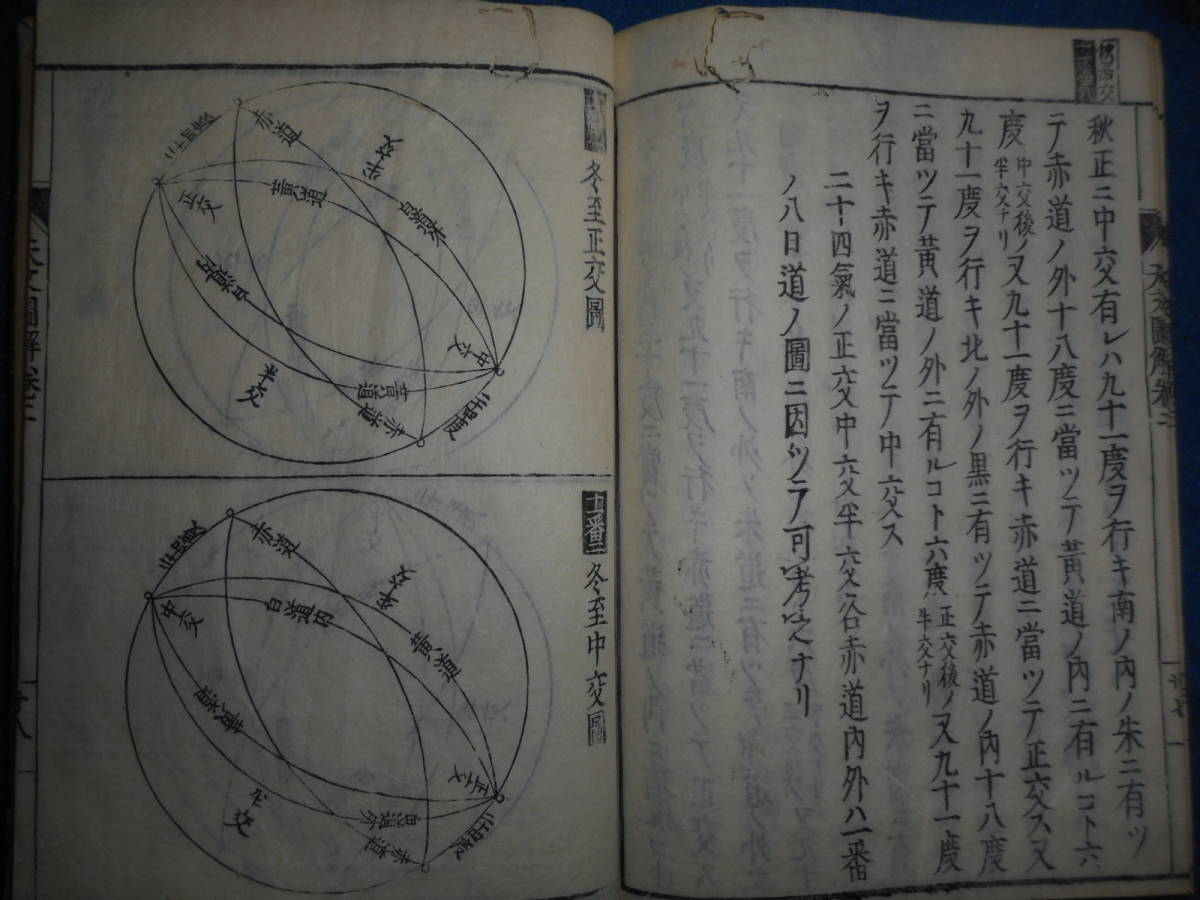 秋正ニ中交有レハ九十一度ヲ行キ南ノ內ノ朱ニ有ツ
テ赤道ノ外十八度ニ當ツテ黃道ノ內ニ有ルコト六
度中交後ノ半交ナリ又九十一度ヲ行キ赤道ニ當ツテ正交ス又
九十一度ヲ行キ北ノ外ノ黒ニ有ツテ赤道ノ內十八度
ニ當ツテ黃道ノ外ニ有ルコト六度正交後ノ半交ナリ又九十一度
ヲ行キ赤道ニ當ツテ中交ス
二十四氣ノ正交中交半交各赤道內外ハ一番
ノ八日道ノ圖ニ因ツテ可考之ナリ
天文圖解卷二
冬至正交圖
赤道
半交
黃道
正交
中交
半交
黃道
冬至中交圖
赤道
半交
白道內
黃道
中交
正交
半交
白道外
赤道
天文圖解卷二
廿八